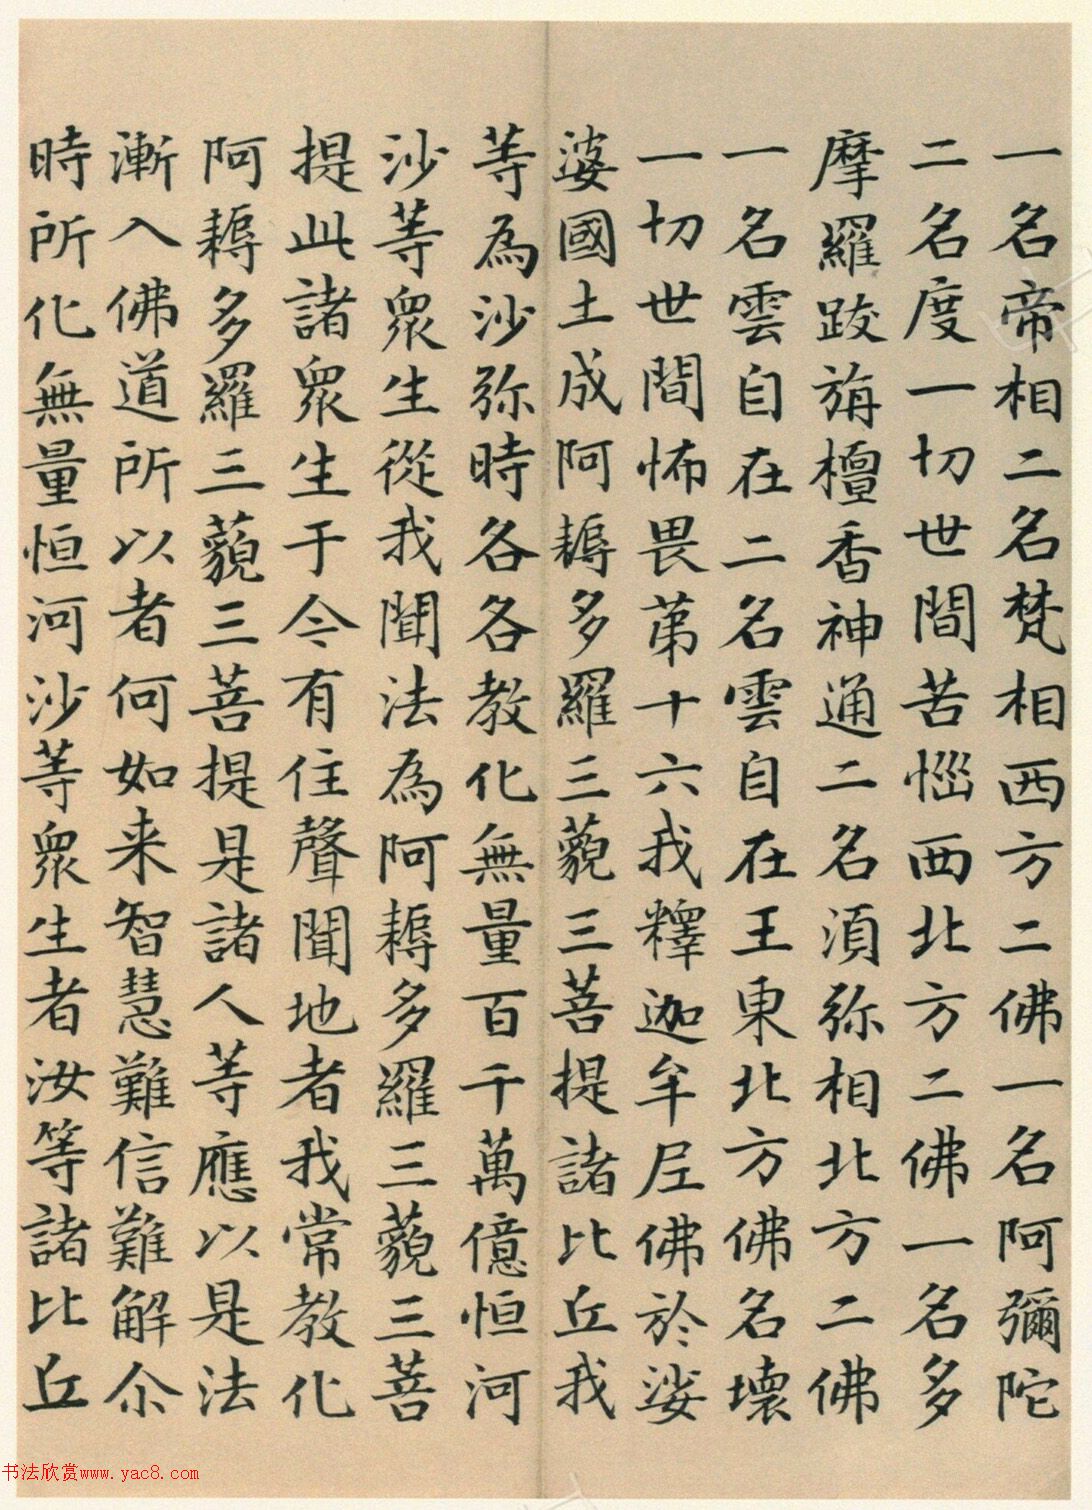 一名帝相二名梵相西方二佛一名阿彌陀
二名度一切世間苦惱西北方二佛一名多
摩羅跋旃檀香神通二名須弥相北方二佛
一名雲自在二名雲自在王東北方佛名壞
一切世間怖畏第十六我釋迦牟尼佛於娑
婆國土成阿耨多羅三藐三菩提諸比丘我
等為沙弥時各各教化無量百千萬億恒河
沙等眾生從我聞法為阿耨多羅三藐三菩
提此諸眾生于今有住聲聞地者我常教化
阿耨多羅三藐三菩提是諸人等應以是法
漸入佛道所以者何如来智慧難信難解尒
時所化無量恒河沙等眾生者汝等諸比丘
书法欣赏www.yac8.com